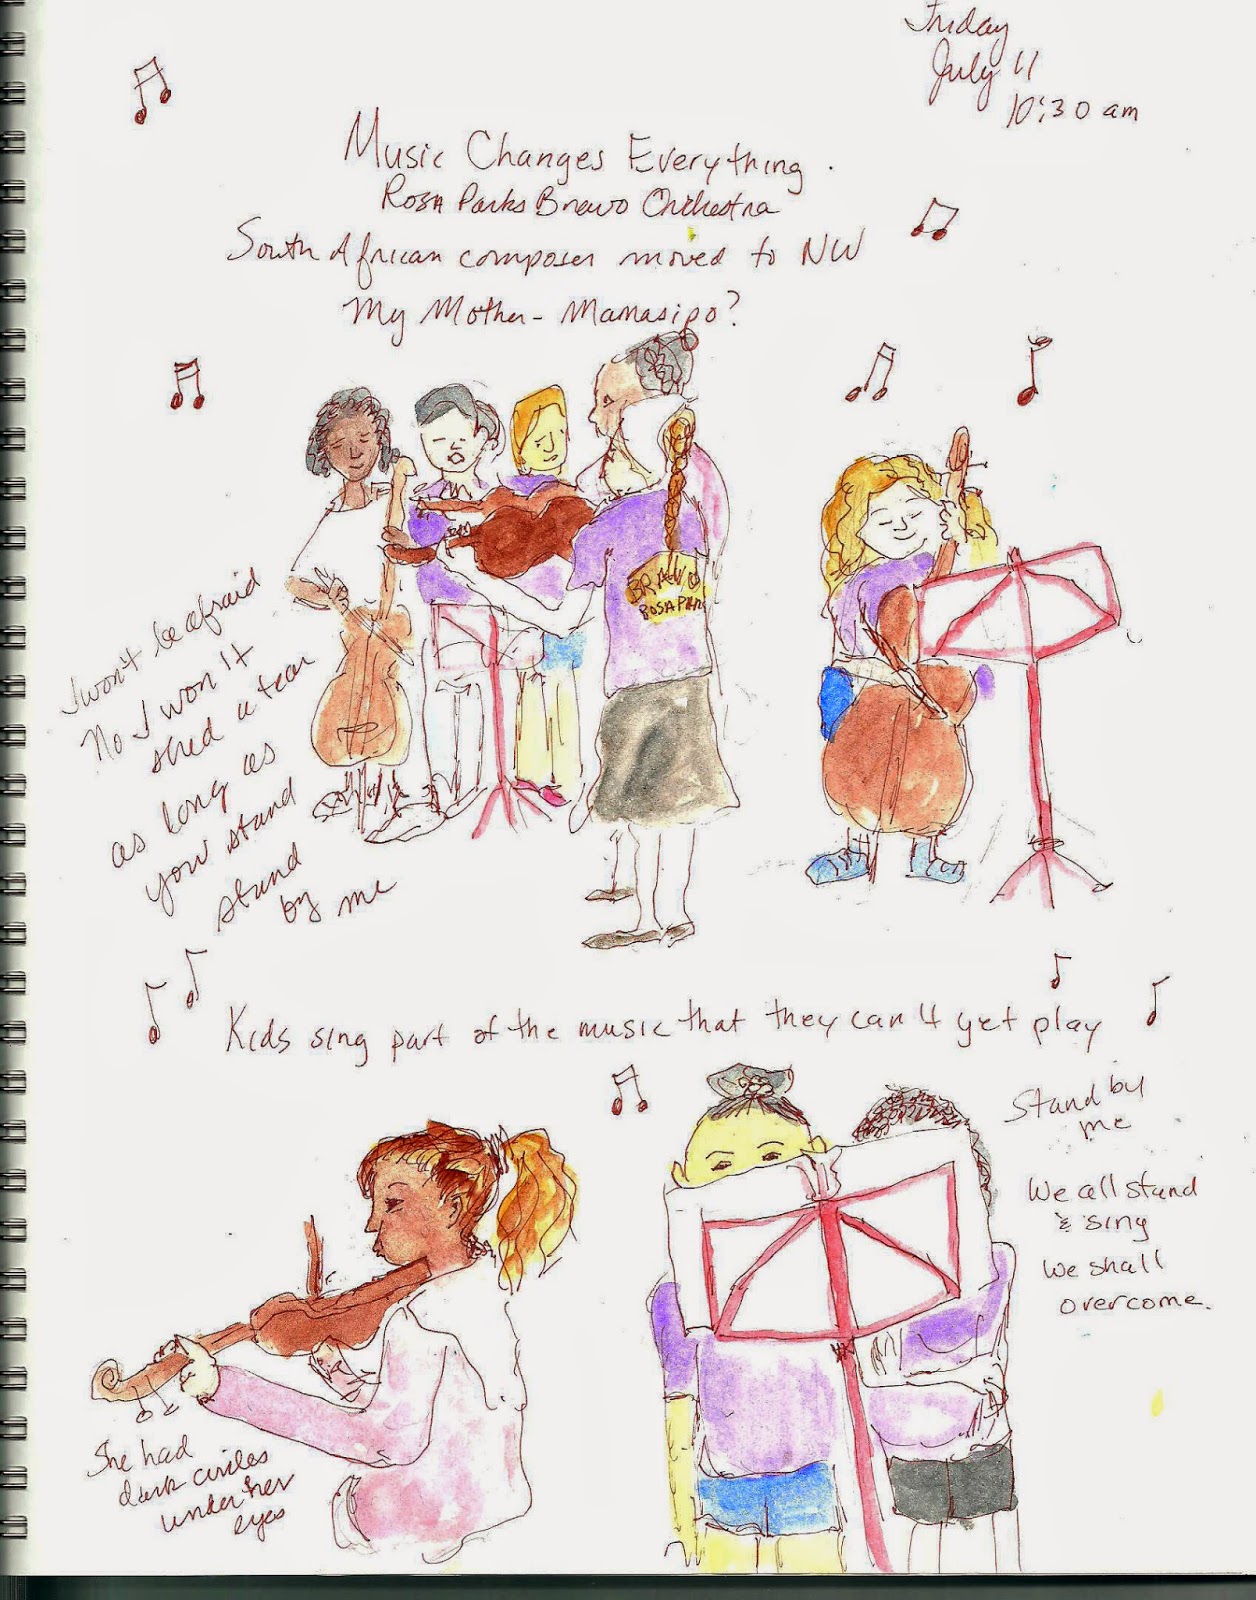 Friday
July 11
10:30 am
Music Changes Everything.
Rosa Parks Bravo Orchestra
South African composer moved to NW
My Mother - Mamasipo?
BRAVO
ROSA PARK
I won't be afraid
No I won't
shed a tear
as long as
you stand
stand
by me
Kids sing part of the music that they can't yet play
Stand by
me
We all stand
& sing
We shall
overcome.
She had
dark circles
under her
eyes